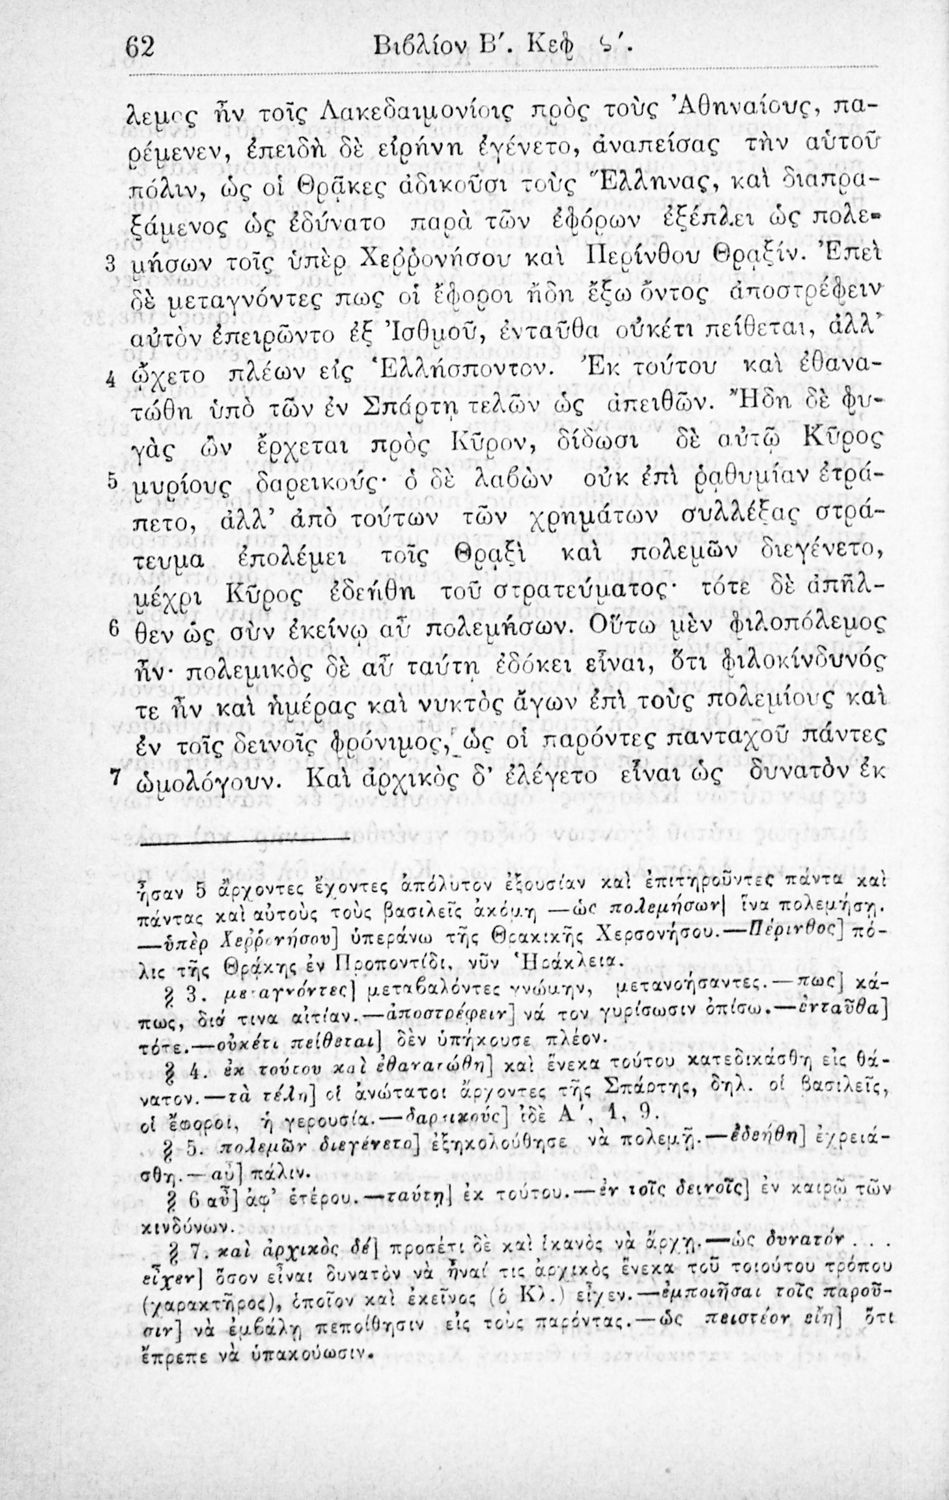 62 Βιβλίον Β′. Κεφ ς′.
λεμος ἦν τοῖς Λακεδαιμονίοις πρὸς τοὺς Ἀθηναίους, πα-
ρέμενεν, ἐπειδὴ δὲ εἰρήνη ἐγένετο, ἀναπείσας τὴν αὑτοῦ
πόλιν, ὡς οἱ Θρᾷκες ἀδικοῦσι τοὺς Ἕλληνας, καὶ διαπρα-
ξάμενος ὡς ἐδύνατο παρὰ τῶν ἐφόρων ἐξέπλει ὡς πολε-
3 μήσων τοῖς ὑπὲρ Χεῤῥονήσου καὶ Περίνθου Θρᾳξίν. Ἐπεὶ
δὲ μεταγνόντες πως οἱ ἔφοροι ἤδη ἔξω ὄντος ἀποστρέφειν
αὐτὸν ἐπειρῶντο ἐξ Ἰσθμοῦ, ἐνταῦθα οὐκέτι πείθεται, ἀλλ’
4 ᾤχετο πλέων εἰς Ἑλλήσποντον. Ἐκ τούτου καὶ ἐθανα-
τώθη ὑπὸ τῶν ἐν Σπάρτῃ τελῶν ὡς ἀπειθῶν. Ἤδη δὲ φυ-
γὰς ὢν ἔρχεται πρὸς Κῦρον, δίδωσι δὲ αὐτῷ Κῦρος
5 μυρίους δαρεικούς· ὁ δὲ λαβὼν οὐκ ἐπὶ ῥᾳθυμίαν ἐτρά-
πετο, ἀλλ’ ἀπὸ τούτων τῶν χρημάτων συλλέξας στρά-
τευμα ἐπολέμει τοῖς Θρᾳξὶ καὶ πολεμῶν διεγένετο,
μέχρι Κῦρος ἐδεήθη τοῦ στρατεύματος· τότε δὲ ἀπῆλ-
6 θεν ὡς σὺν ἐκείνῳ αὖ πολεμήσων. Οὕτω μὲν φιλοπόλεμος
ἦν· πολεμικὸς δὲ αὖ ταύτῃ ἐδόκει εἶναι, ὅτι φιλοκίνδυνός
τε ἦν καὶ ἡμέρας καὶ νυκτὸς ἄγων ἐπὶ τοὺς πολεμίους καὶ
ἐν τοῖς δεινοῖς φρόνιμος, ὡς οἱ παρόντες πανταχοῦ πάντες
7 ὡμολόγουν. Καὶ ἀρχικὸς δ’ ἐλέγετο εἶναι ὡς δυνατὸν ἐκ
ἦσαν 5 ἄρχοντες ἔχοντες ἀπόλυτον ἐξουσίαν καὶ ἐπιτηροῦντες πάντα καὶ
πάντας καὶ αὐτοὺς τοὺς βασιλεῖς ἀκόμη —ὡς πολεμήσων] ἵνα πολεμήσῃ.
—ὑπὲρ Χεῤῥονήσου] ὑπεράνω τῆς Θρακικῆς Χερσονήσου.—Πέρινθος] πό-
λις τῆς Θράκης ἐν Προποντίδι, νῦν Ἡράκλεια.
§ 3. μεταγνόντες] μεταβαλόντες γνώμην, μετανοήσαντες.—πως] κά-
πως, διά τινα αἰτίαν.—ἀποστρέφειν] νά τον γυρίσωσιν ὀπίσω.—ἐνταῦθα]
τότε.—οὐκέτι πείθεται] δὲν ὑπήκουσε πλέον.
§ 4. ἐκ τούτου καὶ ἐθανατώθη] καὶ ἕνεκα τούτου κατεδικάσθη εἰς θά-
νατον.—τὰ τέλη] οἱ ἀνώτατοι ἄρχοντες τῆς Σπάρτης, δηλ. οἱ βασιλεῖς,
οἱ ἔφοροι, ἡ γερουσία.—δαρεικούς] ἰδὲ Α′, 1, 9.
§ 5. πολεμῶν διεγένετο] ἐξηκολούθησε νὰ πολεμῇ.—ἐδεήθη] ἐχρειά-
σθη.—αὖ] πάλιν.
§ 6 αὖ] ἀφ’ ἑτέρου.—ταύτῃ] ἐκ τούτου.—ἐν τοῖς δεινοῖς] ἐν καιρῷ τῶν
κινδύνων.
§ 7. καὶ ἀρχικὸς δέ] προσέτι δὲ καὶ ἱκανὸς νὰ ἄρχῃ.—ὡς δυνατόν . . .
εἶχεν] ὅσον εἶναι δυνατὸν νὰ ἦναί τις ἀρχικὸς ἕνεκα τοῦ τοιούτου τρόπου
(χαρακτῆρος), ὁποῖον καὶ ἐκεῖνος (ὁ Κλ.) εἶχεν.—ἐμποιῆσαι τοῖς παροῦ-
σιν] νὰ ἐμβάλῃ πεποίθησιν εἰς τοὺς παρόντας.—ὡς πειστέον εἴη] ὅτι
ἔπρεπε νὰ ὑπακούωσιν.